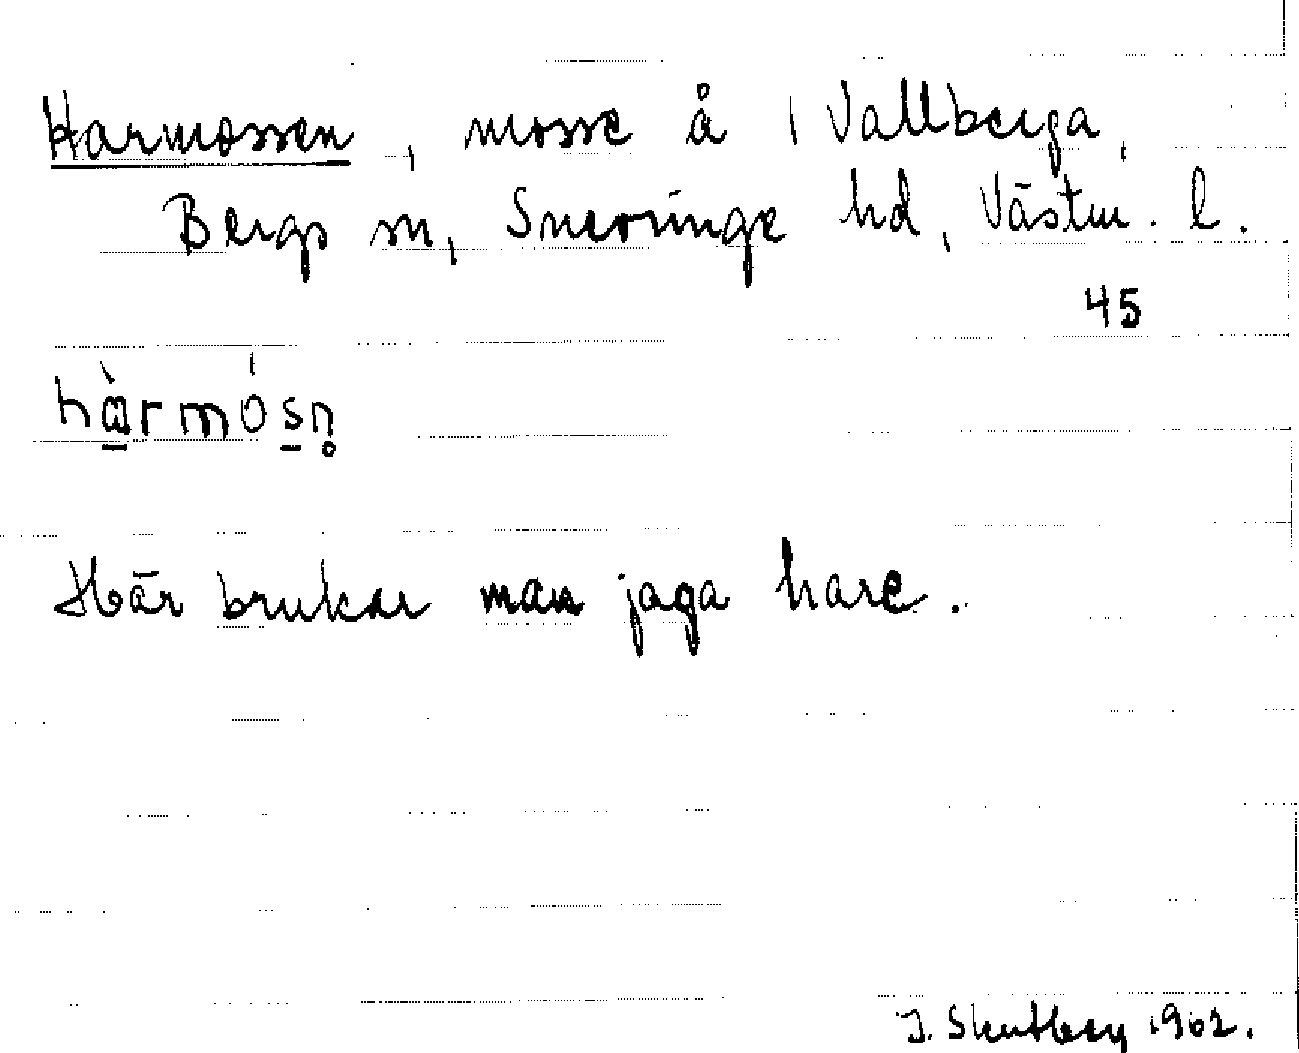 Harmossen, mosse å 1 Vallberga,
Bergs sn, Snevringe hd, Västm. l.
45
hàrmósn̥
Här brukar man jaga hare.
J. 1962.